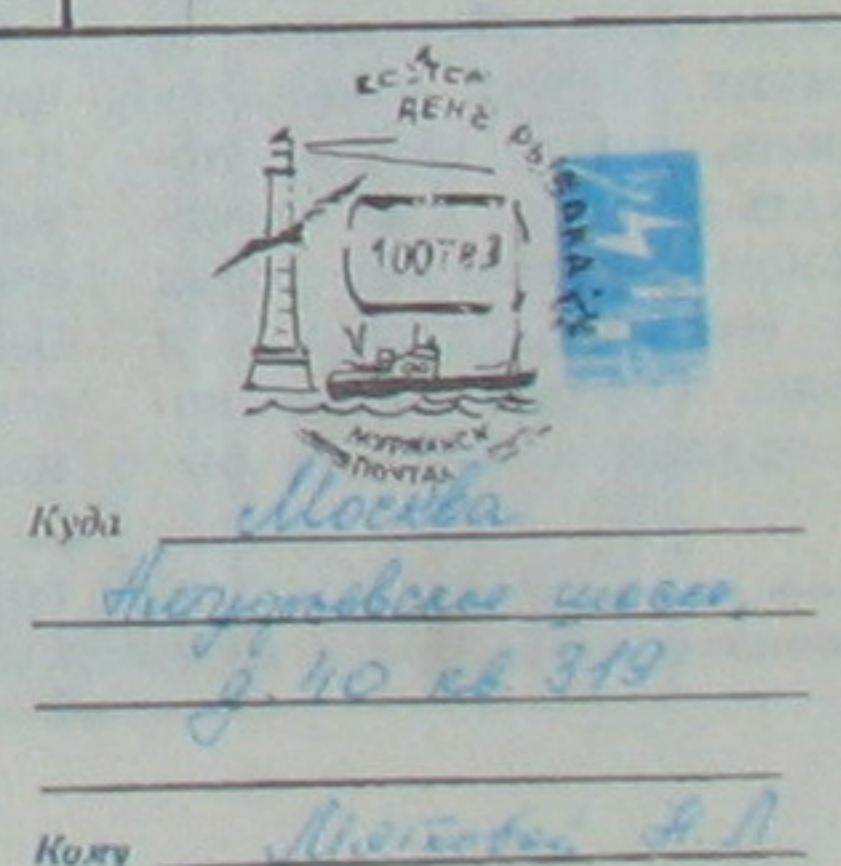 ДЕНЬ РЫБАКА
МУРМАНСК
ПОЧТА
Куда Москва
Алтуфьевское шоссе,
д. 40 кв. 319
Кому